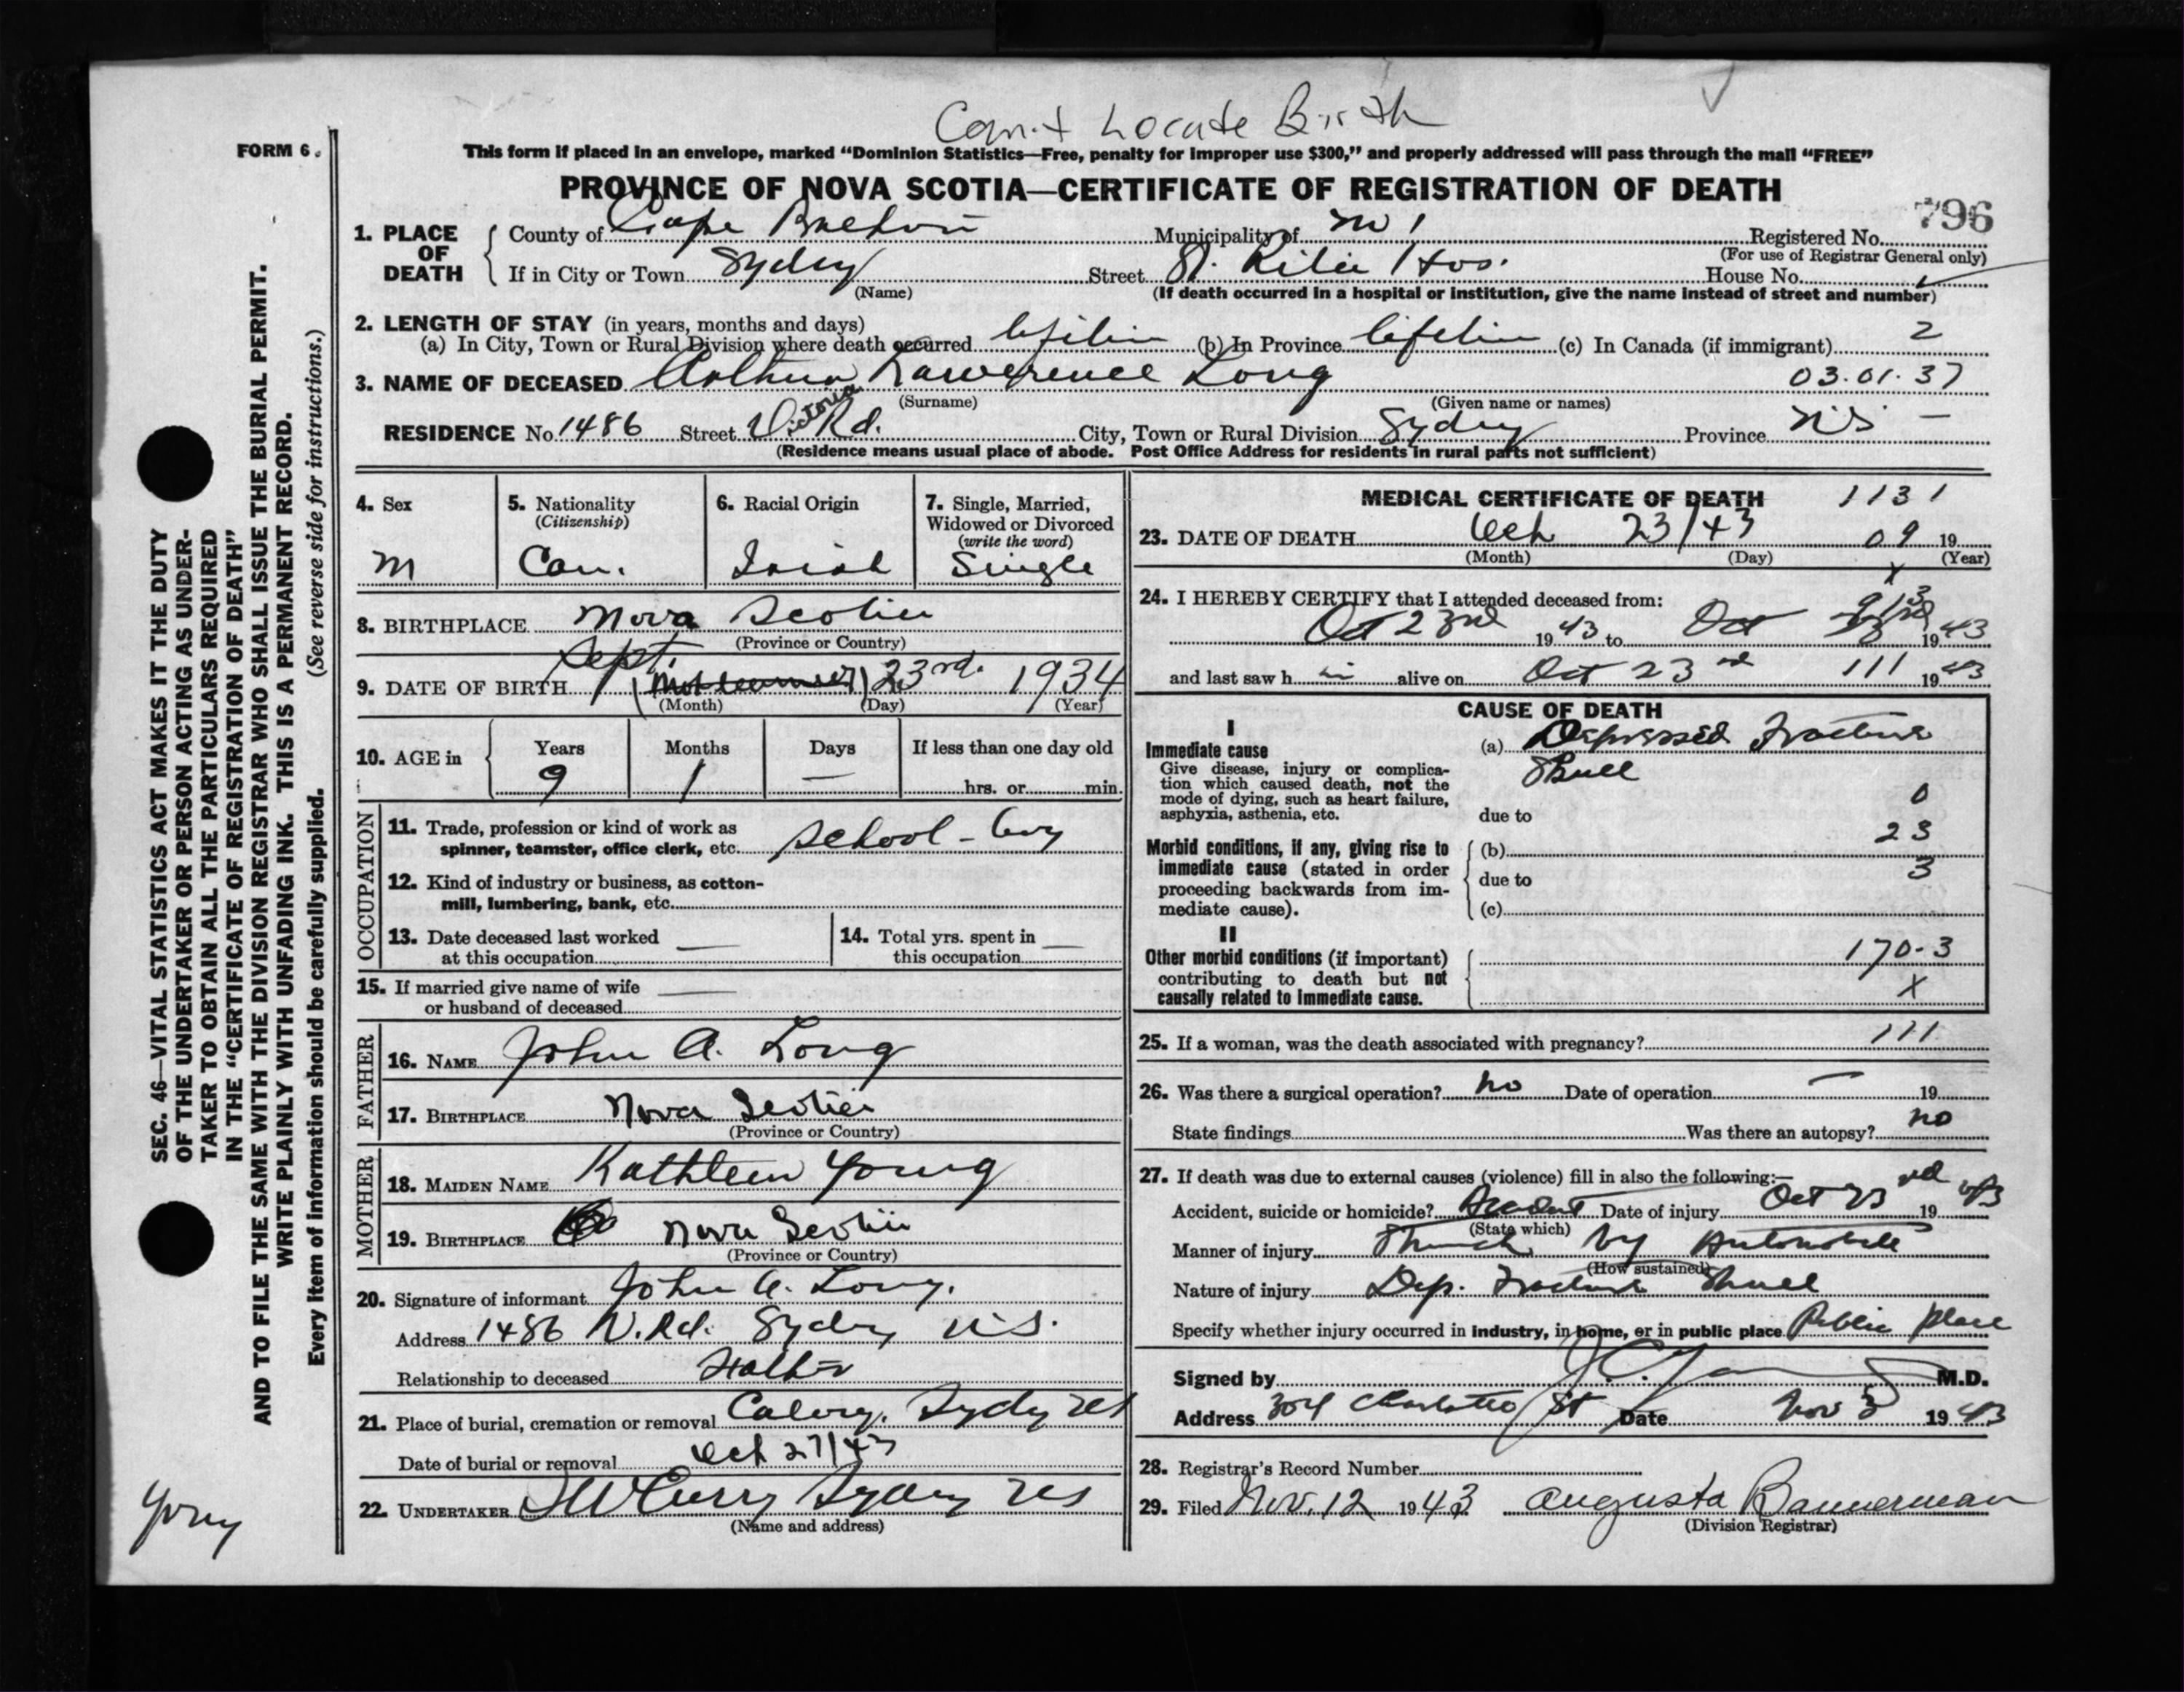 Can't Locate Birth
FORM 6.
This form if placed in an envelope, marked "Dominion Statistics—Free, penalty for improper use $300," and properly addressed will pass through the mail "FREE"
PROVINCE OF NOVA SCOTIA—CERTIFICATE OF REGISTRATION OF DEATH
796
1. PLACE OF DEATH
County of Cape Breton Municipality of Registered No.
(For use of Registrar General only)
If in City or Town Sydney Street St. Rita Hos. House No.
(Name) (If death occurred in a hospital or institution, give the name instead of street and number)
2. LENGTH OF STAY (in years, months and days)
(a) In City, Town or Rural Division where death occurred lifetime (b) In Province lifetime (c) In Canada (if immigrant) 2
3. NAME OF DECEASED Arthur Lawerence Long 03.01.37
(Surname) (Given name or names)
RESIDENCE No. 1486 Street Victoria Rd. City, Town or Rural Division Sydney Province N.S. —
(Residence means usual place of abode. Post Office Address for residents in rural parts not sufficient)
4. Sex
M
5. Nationality
(Citizenship)
Can.
6. Racial Origin
Irish
7. Single, Married,
Widowed or Divorced
(write the word)
Single
8. BIRTHPLACE Nova Scotia
(Province or Country)
9. DATE OF BIRTH Sept. 23rd. 1934
(Month) (Day) (Year)
10. AGE in
Years Months Days If less than one day old
9 1 — hrs. or min.
OCCUPATION
11. Trade, profession or kind of work as
spinner, teamster, office clerk, etc. School-boy
12. Kind of industry or business, as cotton-
mill, lumbering, bank, etc.
13. Date deceased last worked —
at this occupation
14. Total yrs. spent in —
this occupation
15. If married give name of wife —
or husband of deceased
FATHER
16. NAME John A. Long
17. BIRTHPLACE Nova Scotia
(Province or Country)
MOTHER
18. MAIDEN NAME Kathleen Young
19. BIRTHPLACE Nova Scotia
(Province or Country)
20. Signature of informant John A. Long.
Address 1486 V. Rd. Sydney N.S.
Relationship to deceased Father
21. Place of burial, cremation or removal Calvry, Sydney NS
Date of burial or removal Oct 27/43
22. UNDERTAKER Curry Sydney NS
(Name and address)
MEDICAL CERTIFICATE OF DEATH 1131
23. DATE OF DEATH Oct 23/43 09 19
(Month) (Day) (Year)
24. I HEREBY CERTIFY that I attended deceased from:
Oct 23rd 1943 to Oct 23rd 1943
and last saw h im alive on Oct 23rd 111 1943
CAUSE OF DEATH
I
Immediate cause
Give disease, injury or complica-
tion which caused death, not the
mode of dying, such as heart failure,
asphyxia, asthenia, etc.
(a) Depressed Fracture
Skull
0
due to
23
Morbid conditions, if any, giving rise to
immediate cause (stated in order
proceeding backwards from im-
mediate cause).
(b)
3
due to
(c)
II
Other morbid conditions (if important)
contributing to death but not
causally related to immediate cause.
170-3
X
25. If a woman, was the death associated with pregnancy? 111
26. Was there a surgical operation? no Date of operation — 19
State findings Was there an autopsy? no
27. If death was due to external causes (violence) fill in also the following:—
Accident, suicide or homicide? Accident Date of injury Oct 23rd 1943
(State which)
Manner of injury Struck by Automobile
(How sustained)
Nature of injury Dep. Fracture Skull
Specify whether injury occurred in industry, in home, or in public place Public place
Signed by M.D.
Address 304 Charlotte St Date Nov 3 1943
28. Registrar's Record Number
29. Filed Nov. 12 1943 Augusta Bannerman
(Division Registrar)
SEC. 46—VITAL STATISTICS ACT MAKES IT THE DUTY
OF THE UNDERTAKER OR PERSON ACTING AS UNDER-
TAKER TO OBTAIN ALL THE PARTICULARS REQUIRED
IN THE "CERTIFICATE OF REGISTRATION OF DEATH"
AND TO FILE THE SAME WITH THE DIVISION REGISTRAR WHO SHALL ISSUE THE BURIAL PERMIT.
WRITE PLAINLY WITH UNFADING INK. THIS IS A PERMANENT RECORD.
Every item of information should be carefully supplied. (See reverse side for instructions.)